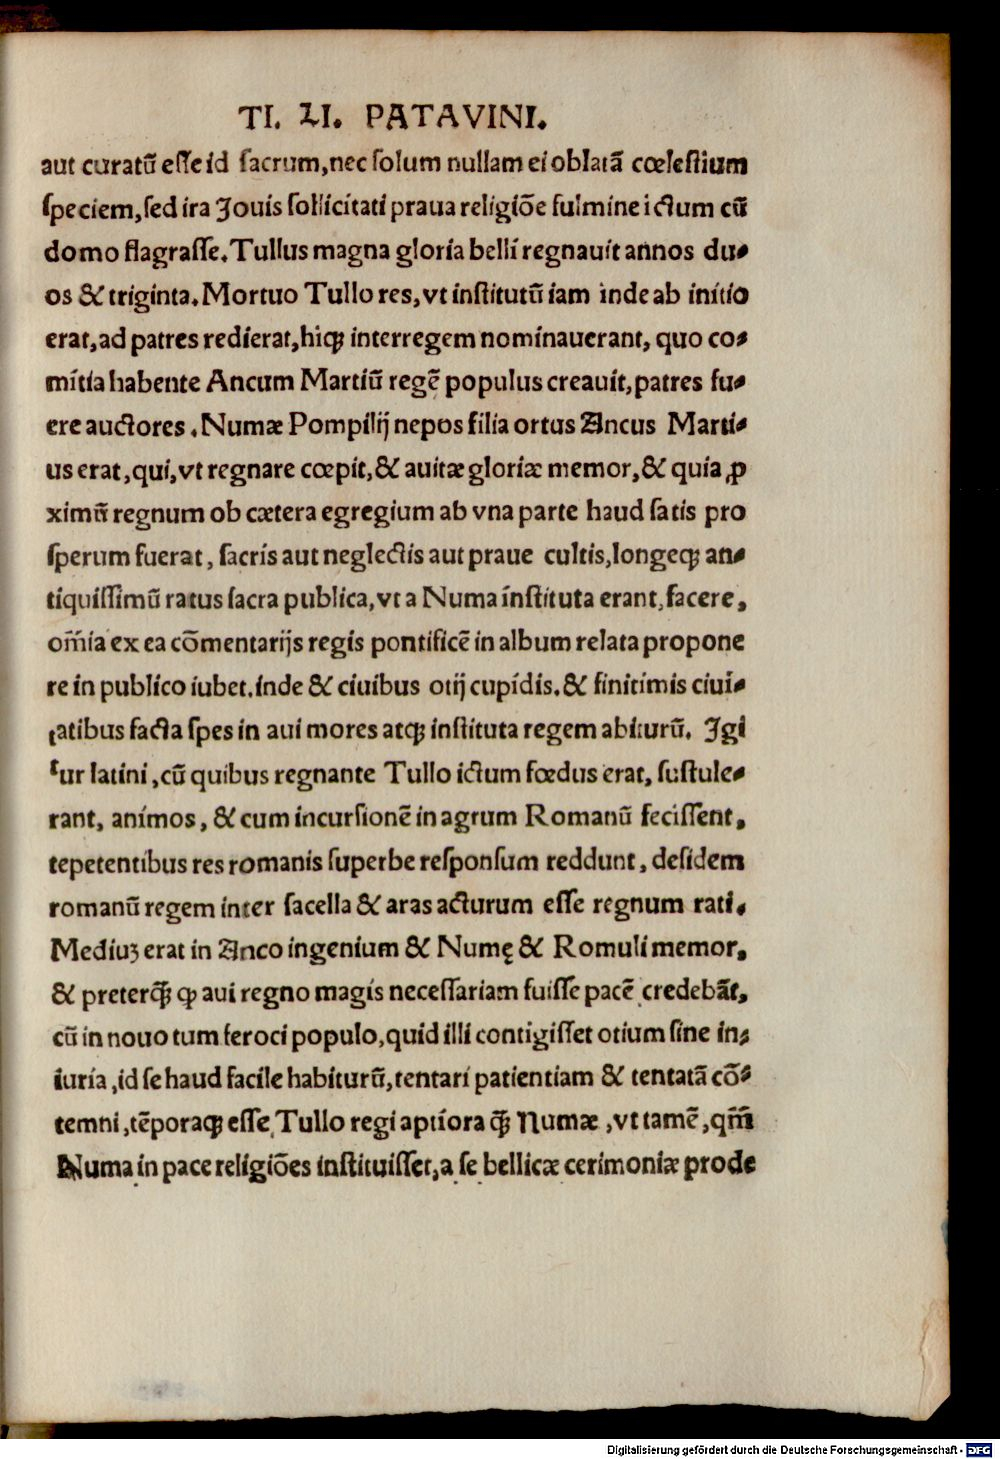 TI. LI. PATAVINI.
aut curatū eſſe id ſacrum, nec ſolum nullam ei oblatā cœleſtium
ſpeciem, ſed ira Jouis ſollicitati praua religiōe fulmine ictum cū
domo flagraſſe. Tullus magna gloria belli regnauit annos du-
os & triginta. Mortuo Tullo res, vt inſtitutū iam inde ab initio
erat, ad patres redierat, hiqꝫ interregem nominauerant, quo co-
mitia habente Ancum Martiū regē populus creauit, patres fu-
ere auctores. Numæ Pompilij nepos filia ortus Ancus Marti-
us erat, qui, vt regnare cœpit, & auitæ gloriæ memor, & quia ꝓ
ximū regnum ob cætera egregium ab vna parte haud ſatis pro
ſperum fuerat, ſacris aut neglectis aut praue cultis, longeqꝫ an-
tiquiſſimū ratus ſacra publica, vt a Numa inſtituta erant, facere,
om̄ia ex ea cōmentarijs regis pontificē in album relata propone
re in publico iubet. inde & ciuibus otij cupidis. & finitimis ciui-
tatibus facta ſpes in aui mores atqꝫ inſtituta regem abiturū. Jgi
tur latini, cū quibus regnante Tullo ictum fœdus erat, ſuſtule-
rant, animos, & cum incurſionē in agrum Romanū feciſſent,
tepetentibus res romanis ſuperbe reſponſum reddunt, deſidem
romanū regem inter ſacella & aras acturum eſſe regnum rati.
Mediuꝫ erat in Anco ingenium & Numę & Romuli memor,
& preterqꝫ̄ ꝙ aui regno magis neceſſariam fuiſſe pacē credebāt,
cū in nouo tum feroci populo, quid illi contigiſſet otium ſine in-
iuria, id ſe haud facile habiturū, tentari patientiam & tentatā cō-
temni, tēporaqꝫ eſſe Tullo regi aptiora qꝫ̄ Numæ, vt tamē, qm̄
Numa in pace religiōes inſtituiſſet, a ſe bellicæ cerimoniæ prode
Digitalisierung gefördert durch die Deutsche Forschungsgemeinschaft - DFG